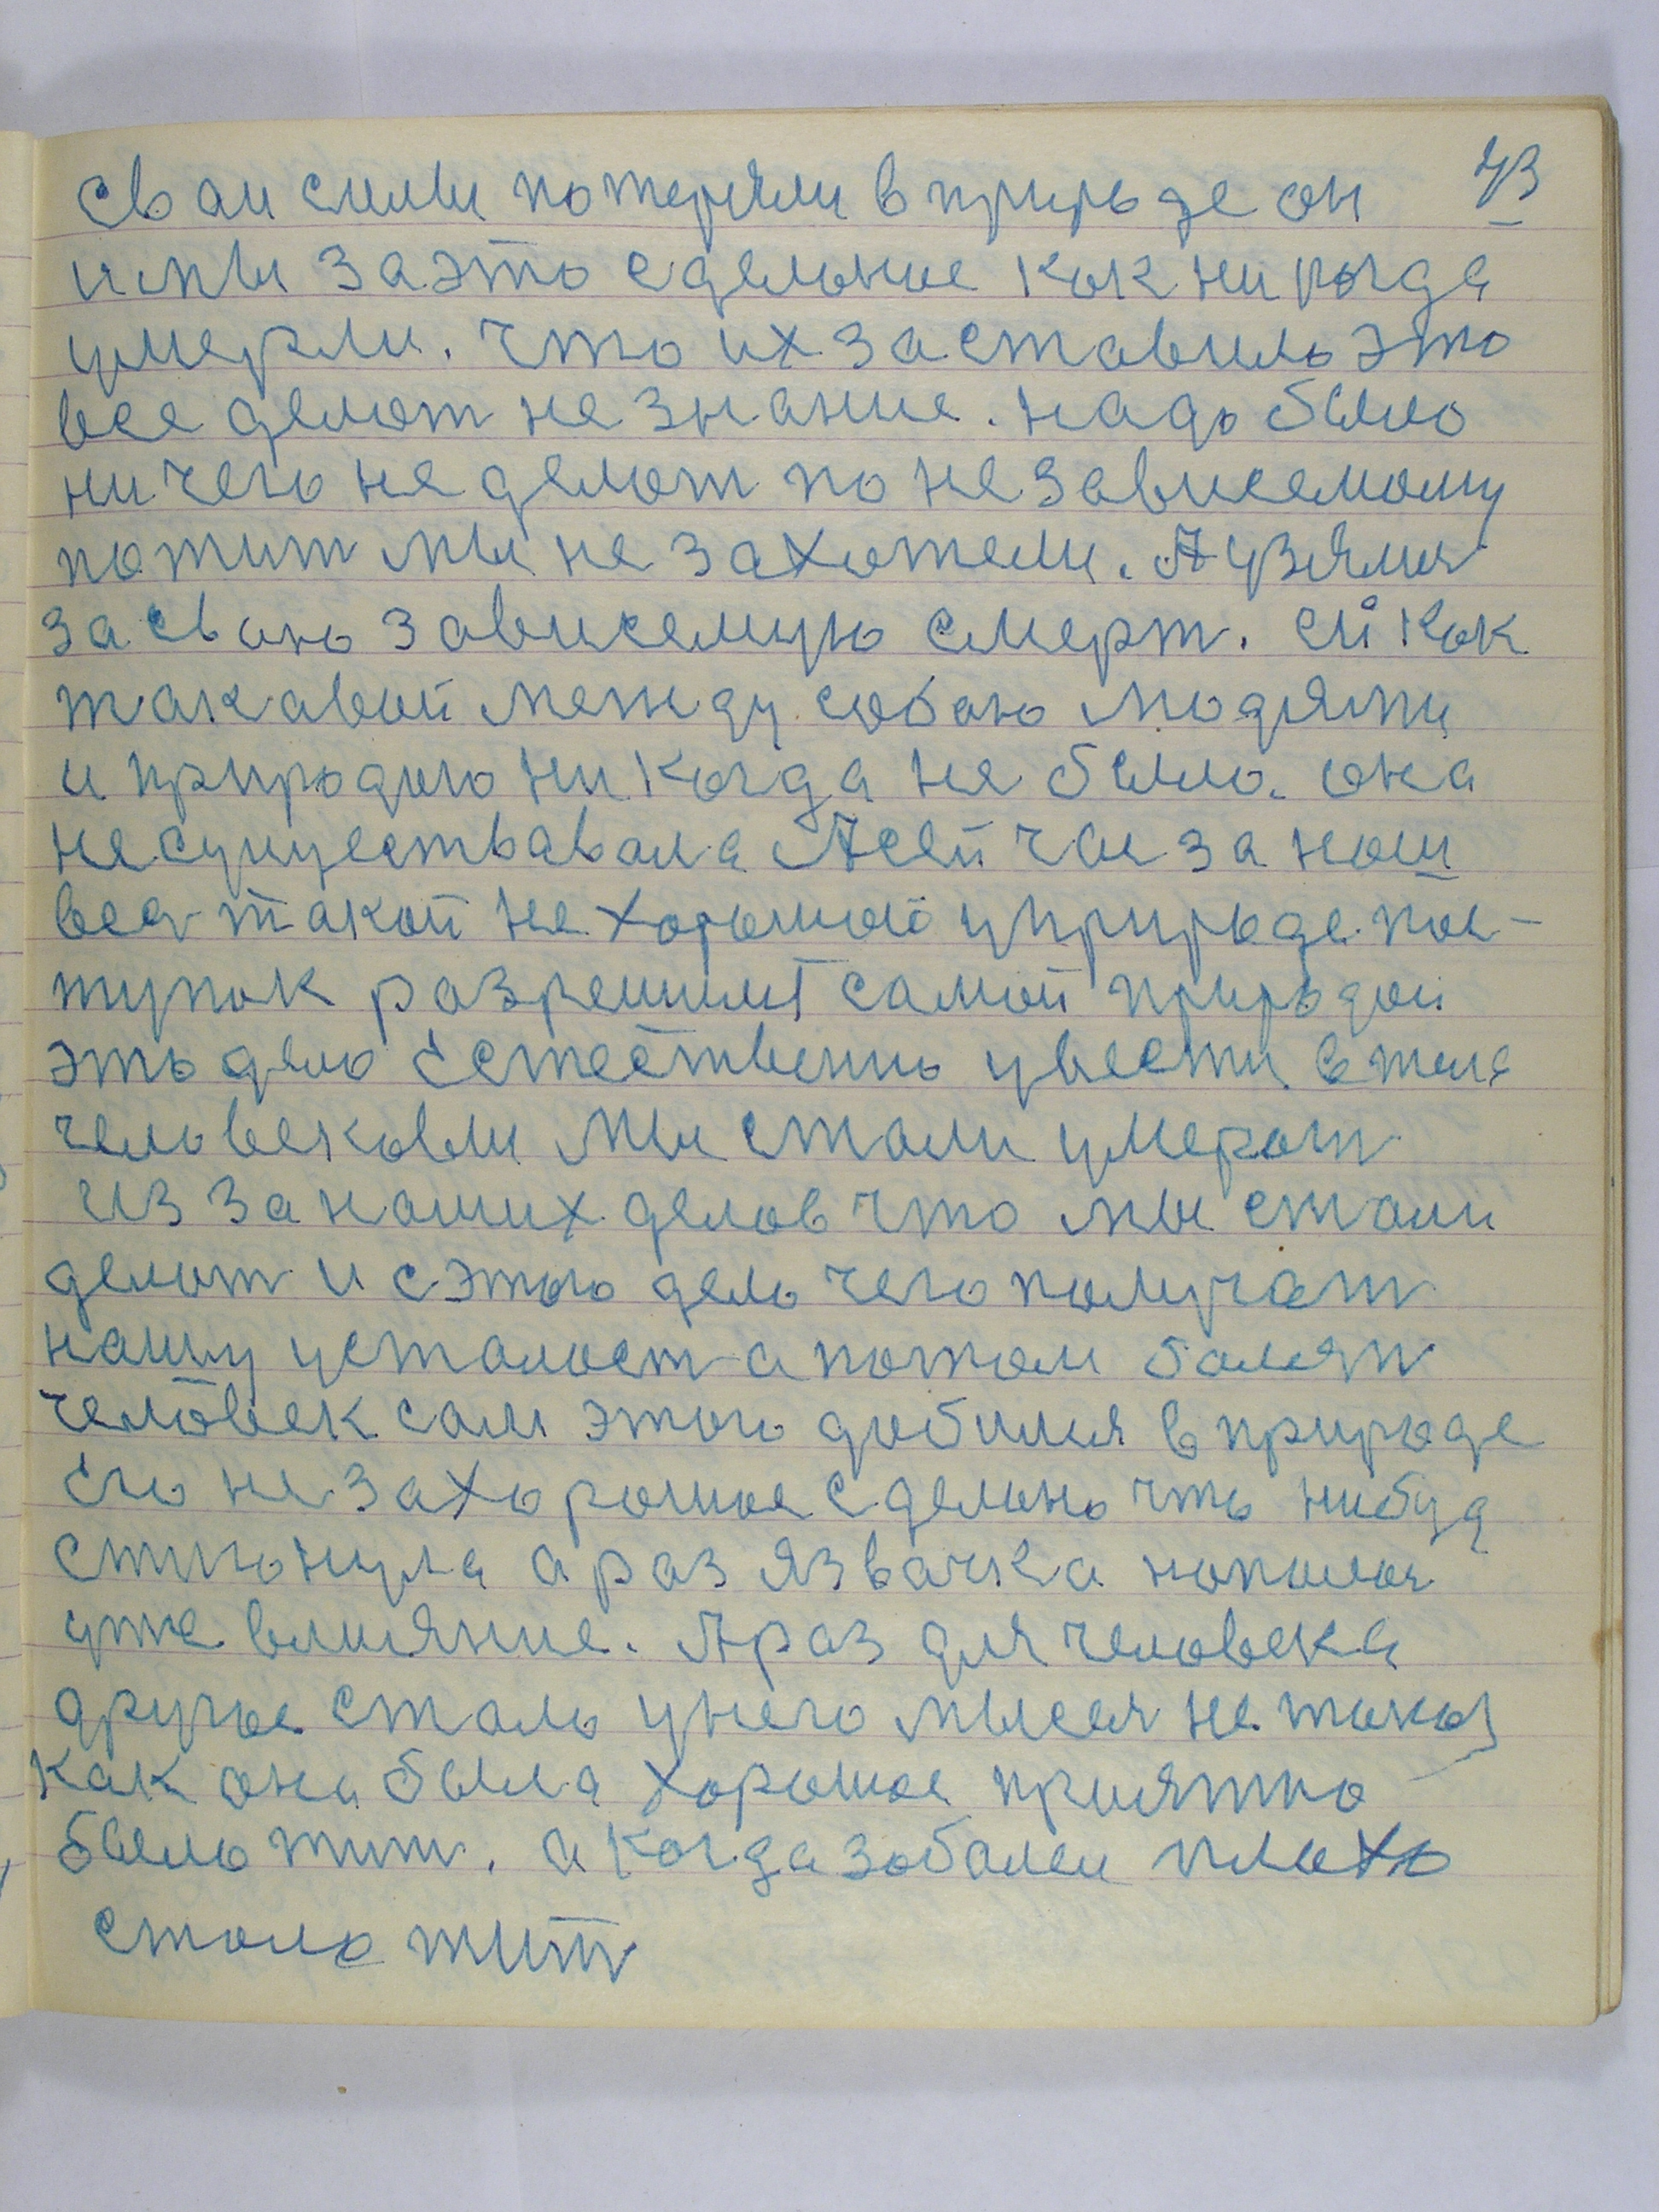 43
сваи силы потеряли в природе он
и мы за это сделоное как никогда
умерли. что их заставило это
все делат не знание. надо было
ничего не делат по независемому
пожит мы не захотели. А взялис
за сваю зависемую смерт. ей как
такавой между собаю людями
и природою никогда не было. она
не существавала А сейчас за наш
вес такой не хорошой у природе пос-
тупок разрешил самой природой
это дело Естественно увести в тела
человековы мы стали умерат
из за наших делов что мы стали
делат и с этого дело чего получат
нашу усталост а потом болезн
человек сам этого добился в природе
Его не за хорошое сделоно что нибуд
стигонула а раз язвачка напалас
уже влияние. А раз для человека
другое стало у него мысля не такая
как она была хорошое приятно
было жит. а когда заболел плохо
стало жит